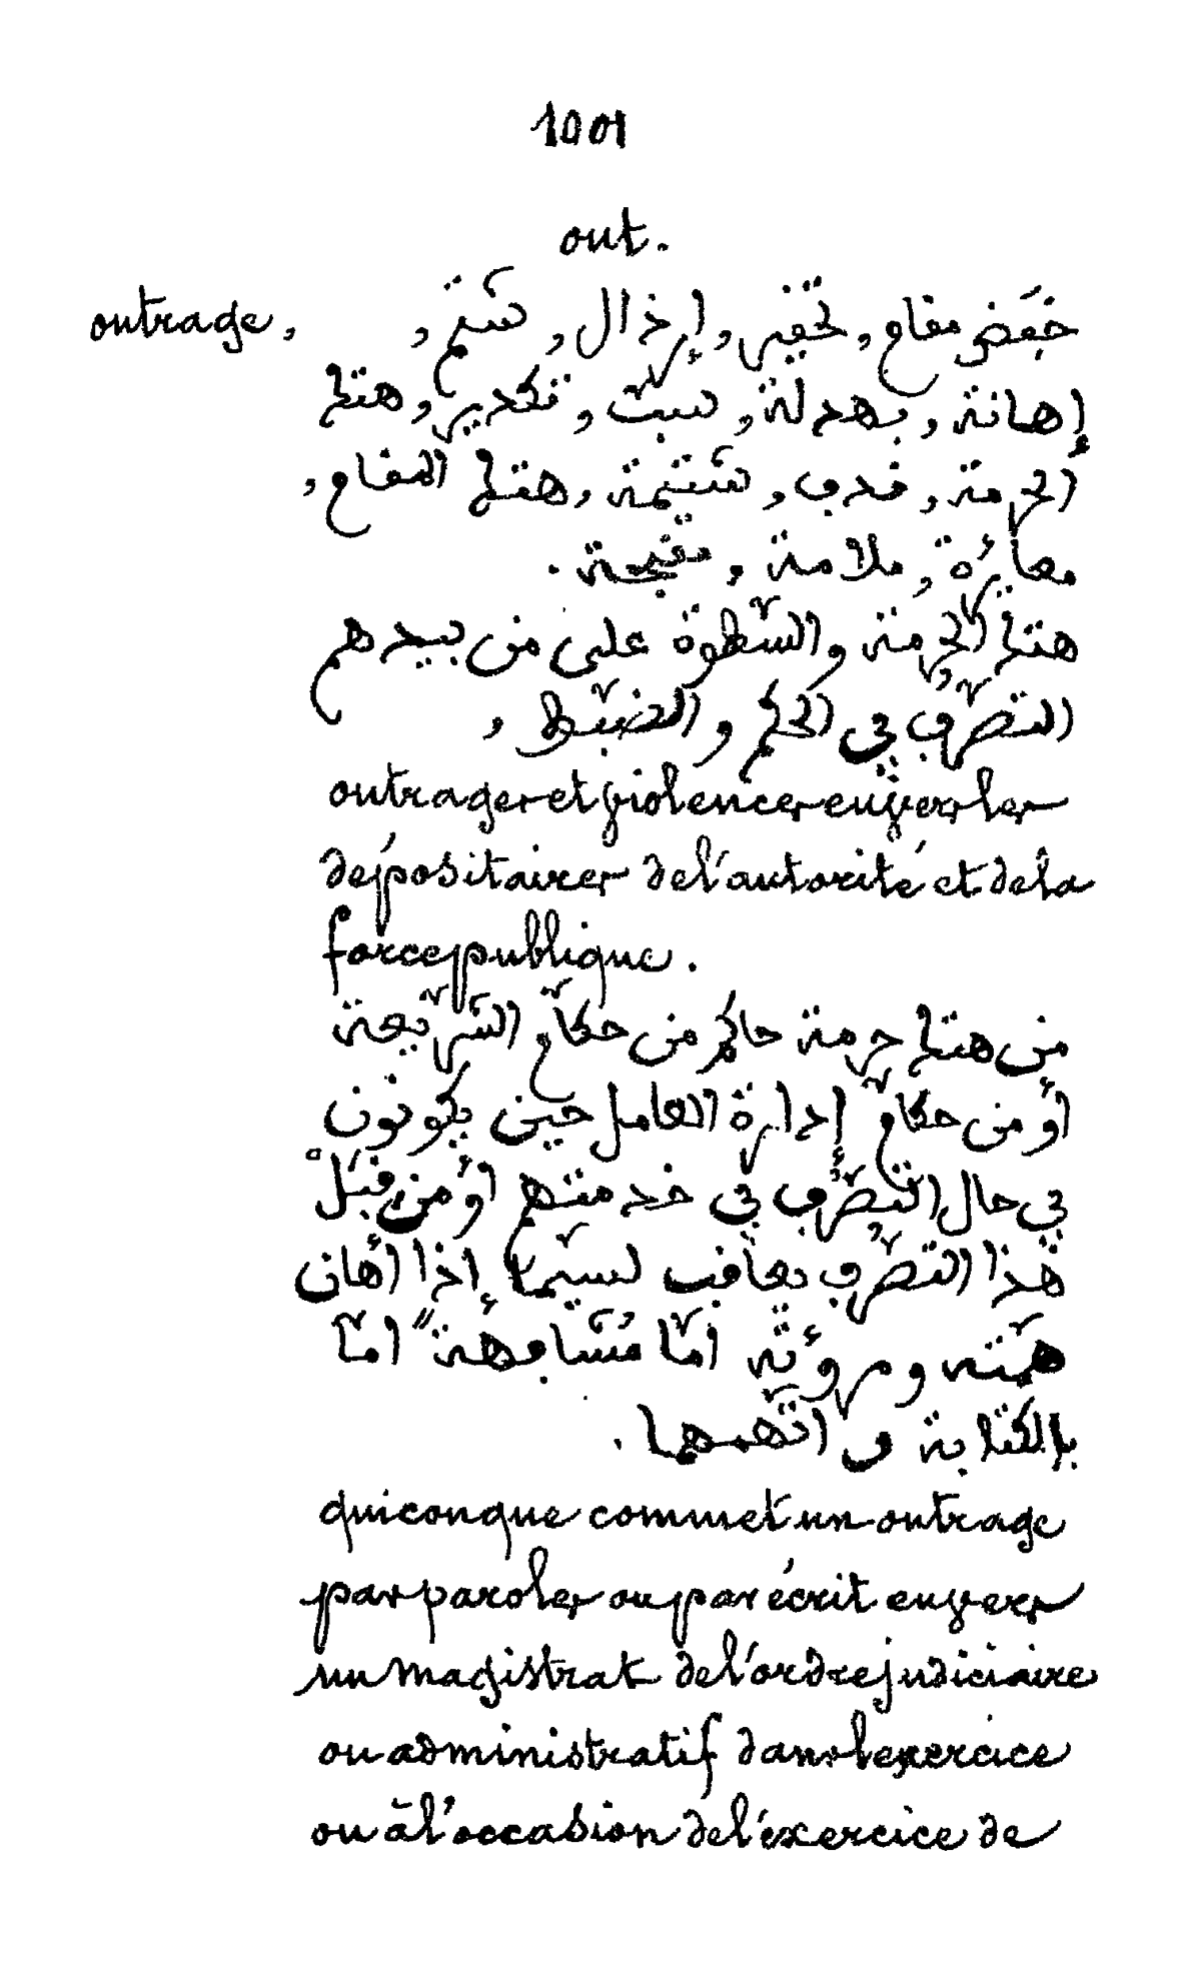 1001
out.
outrage, خَفَض مقام, تحقير, إرذال, شتم,
إهانة, بهدلة, سبّ, تكدير, هتك
الحرمة, قدف, شتيمة, هتك المقام,
معايرة, ملامة, مقبحة.
هتك الحرمة والسّطوة على من بيدهم
التصرّف في الحكم والضبط,
outrages et violences envers les
dépositaires de l'autorité et de la
force publique.
من هتك حرمة حاكم من حكّام الشّريعة
أو من حكّام إدارة العامل حين يكونون
في حال التصرّف في خدمتهم أو من قبل
هذا التصرّف يعاقب لسيّما إذا أهان
همّته ومروءته امّا مُشافهةً امّا
بالكتابة و اتّهمهما.
quiconque commet un outrage
par paroles ou par écrit envers
un magistrat de l'ordre judiciaire
ou administratif dans l'exercice
ou à l'occasion de l'exercice de